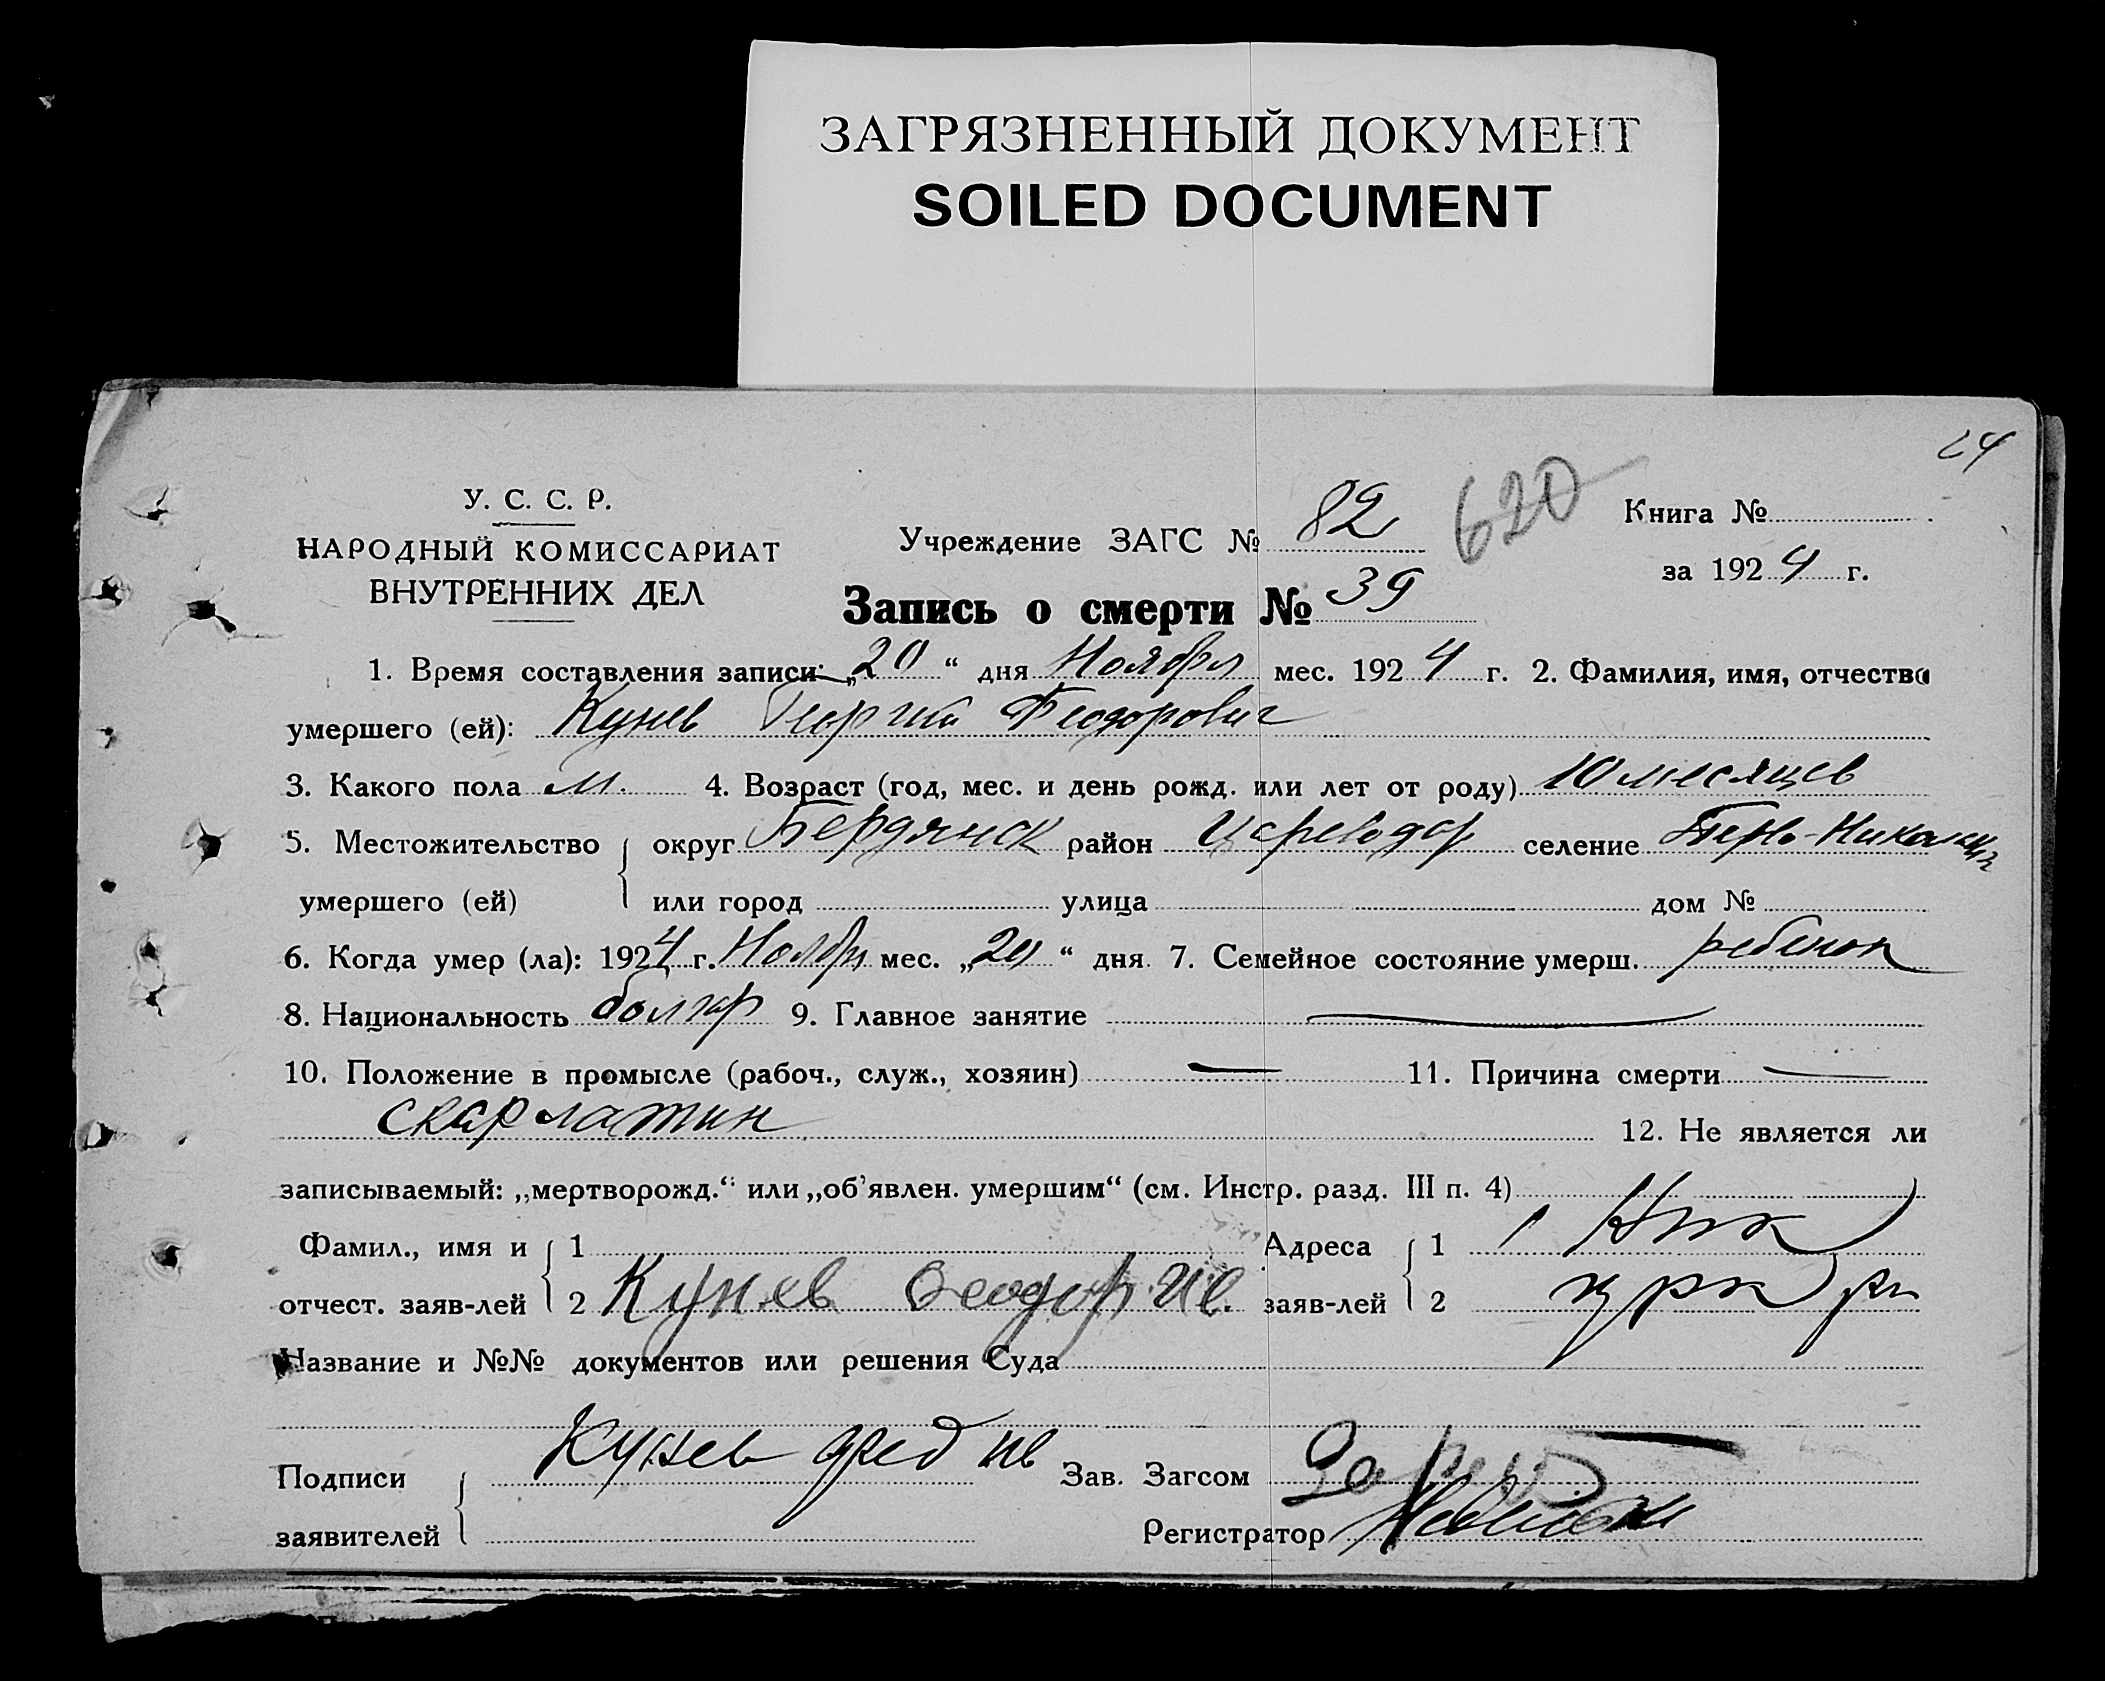 ЗАГРЯЗНЕННЫЙ ДОКУМЕНТ
SOILED DOCUMENT
24
У. С. С. Р.
НАРОДНЫЙ КОМИССАРИАТ
ВНУТРЕННИХ ДЕЛ
Учреждение ЗАГС № 82
620
Книга №
за 1924 г.
Запись о смерти № 39
1. Время составления записи: „20“ дня Ноября мес. 1924 г. 2. Фамилия, имя, отчество
умершего (ей): Кунев Георгий Феодорович
3. Какого пола м. 4. Возраст (год, мес. и день рожд. или лет от роду) 10 месяцев
5. Местожительство округ Бердянск район Цареводар селение
умершего (ей) или город улица дом №
6. Когда умер (ла): 1924 г. Ноябр мес. „20“ дня 7. Семейное состояние умерш. ребенок
8. Национальность болгар 9. Главное занятие
10. Положение в промысле (рабоч., служ., хозяин) — 11. Причина смерти —
скарлатин 12. Не является ли
записываемый: „мертворожд.“ или „об'явлен. умершим“ (см. Инстр. разд. III п. 4)
Фамил., имя и 1 Адреса 1
отчест. заяв-лей 2 Кунев Феодор Ив. заяв-лей 2
Название и №№ документов или решения Суда
Подписи Кунев фед ив Зав. Загсом
заявителей Регистратор